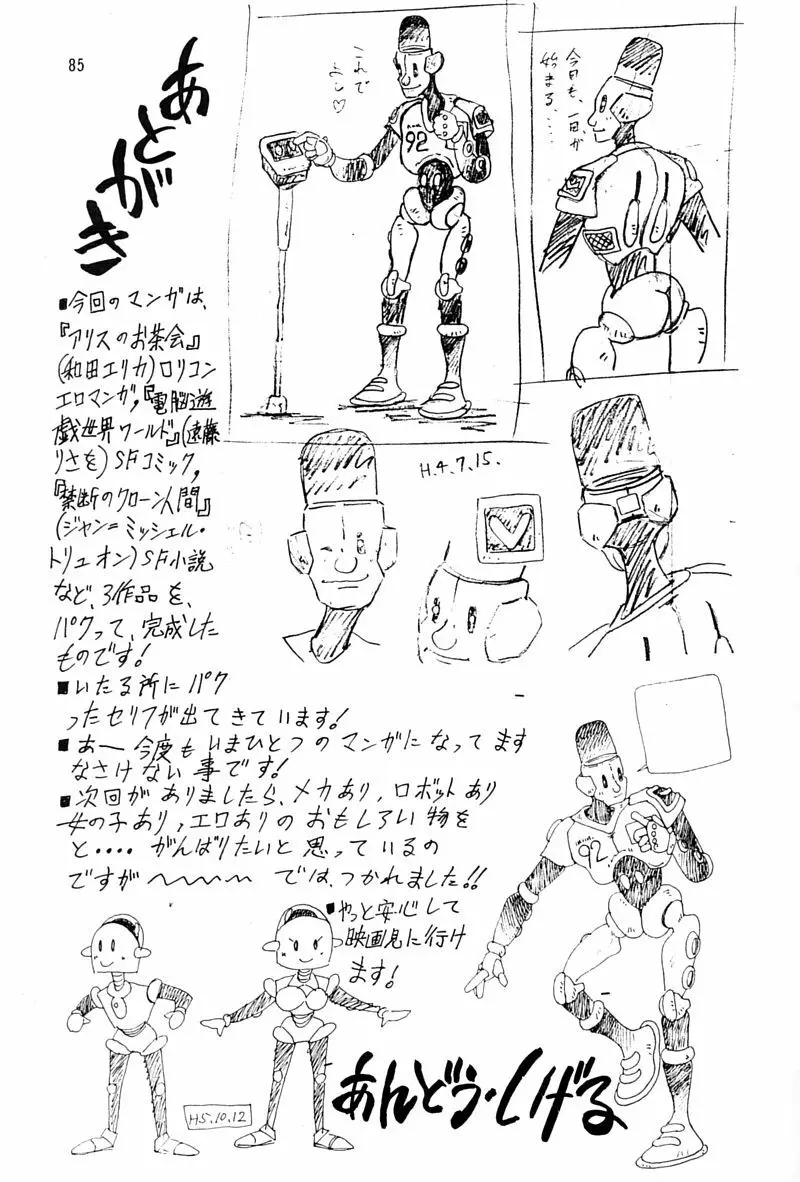 85
あとがき
これで
よし♡
92
今日も、一日が
始まる....
■今回のマンガは、
『アリスのお茶会』
(和田エリカ)ロリコン
エロマンガ,『電脳遊
戯世界ワールド』(遠藤
りさを)SFコミック,
『禁断のクローン人間』
(ジャン=ミッシェル・
トリュオン)SF小説
など、3作品を、
パクって、完成した
ものです!
H.4.7.15.
■いたる所にパク
ったセリフが出てきています!
■あー今度もいまひとつのマンガになってます
なさけない事です!
■次回がありましたら、メカあり,ロボットあり
女の子あり,エロありのおもしろい物を
と・・・・がんばりたいと思っているの
ですが〜〜〜〜では、つかれました!!
■やっと安心して
映画見に行け
ます!
92
H5.10.12
あんどう・しげる